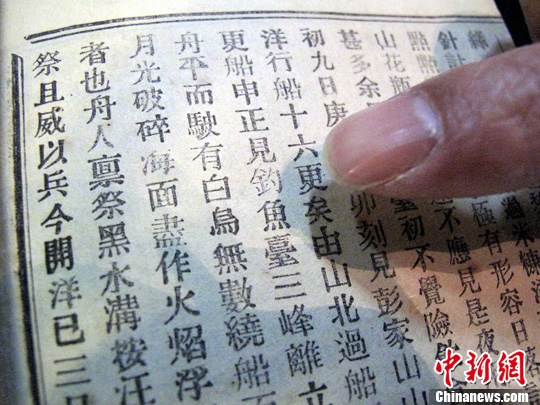 過米糠洋
針計
點點 極有形容日落
山花瓶 不應見是夜
甚多余 臺初不覺險
初九日庚 卯刻見彭家山山
洋行船十六更矣由山北過船
更船申正見釣魚臺三峰離立
舟平而駛有白鳥無數繞船而
月光破碎海面盡作火焰浮
者也舟人稟祭黑水溝按汪
祭且威以兵今開洋已三日
中新网
Chinanews.com